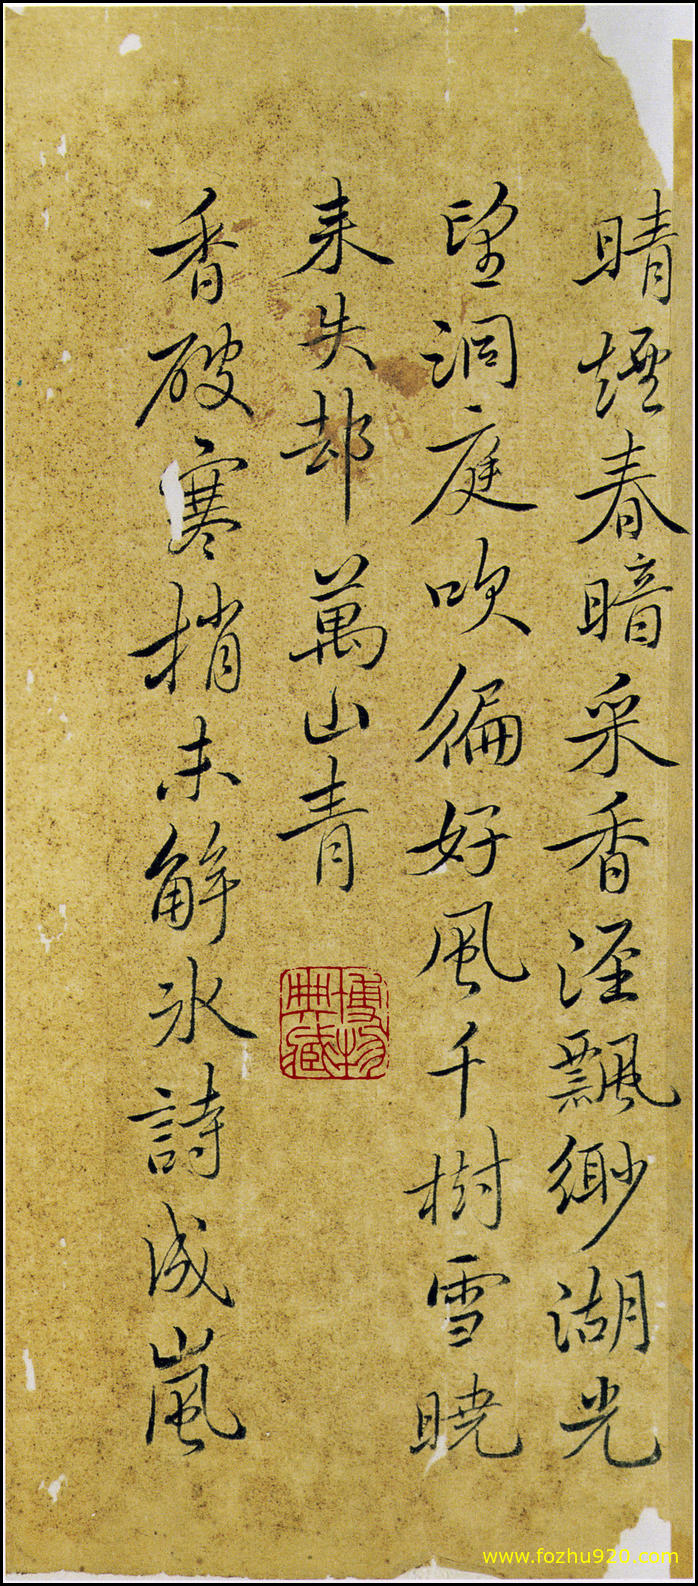 晴煙春暗采香涇飄緲湖光
望洞庭吹徧好風千樹雪曉
来失却萬山青
香破寒梢未解冰詩成嵐
博物
典藏
www.fozhu920.com